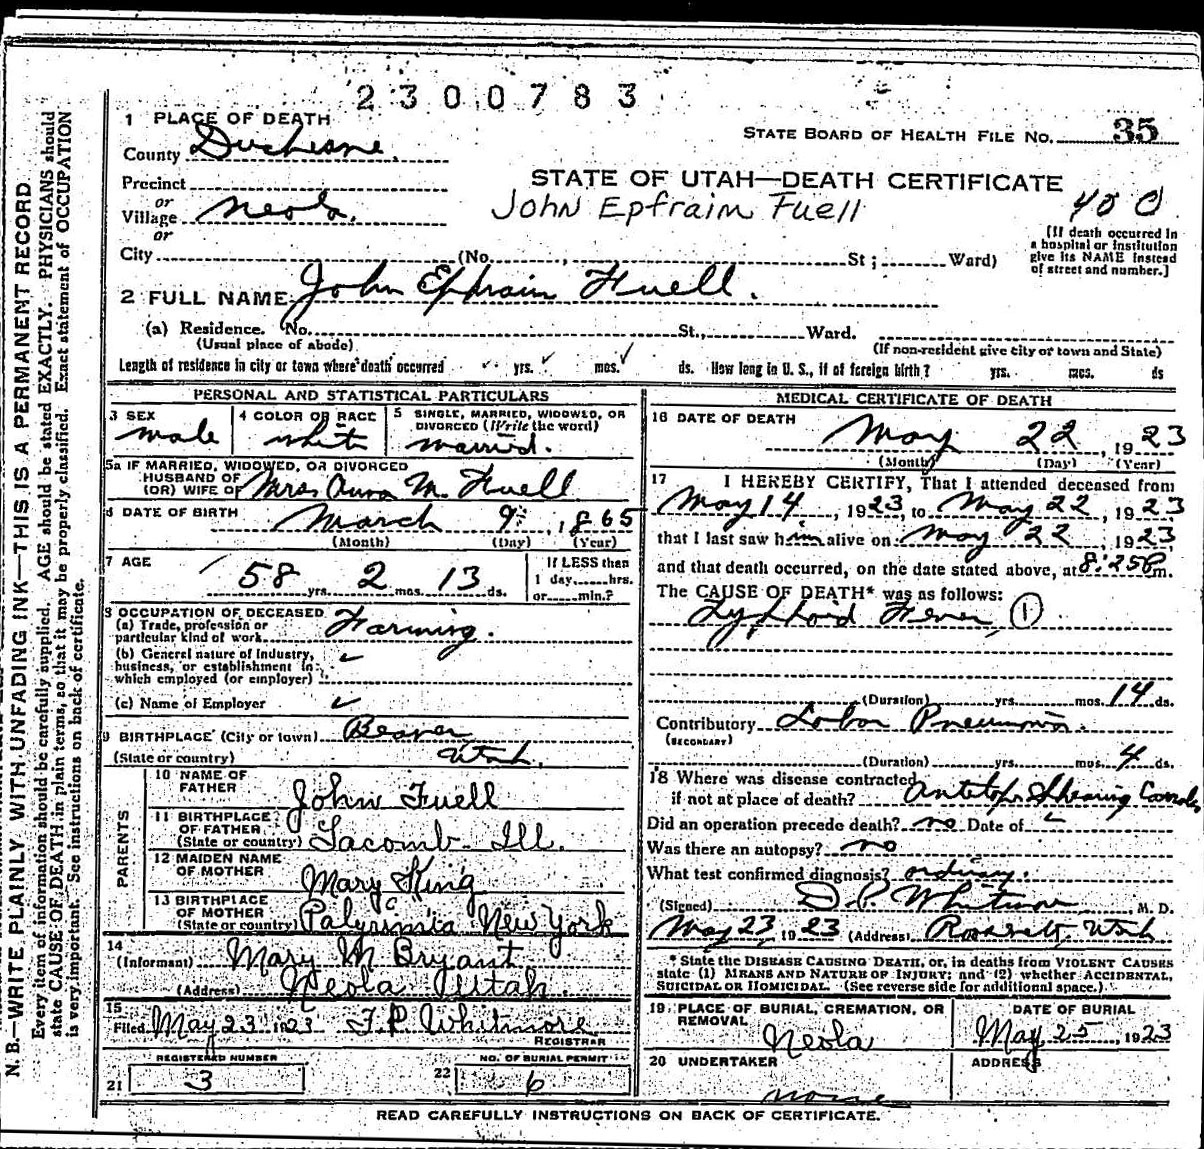 2300783
1 PLACE OF DEATH
STATE BOARD OF HEALTH FILE No. 35
County Duchesne.
STATE OF UTAH—DEATH CERTIFICATE
Precinct
John Epfraim Fuell
or
Village Neola.
or
(If death occurred in
a hospital or institution
give its NAME instead
of street and number.]
City (No. , St ; Ward)
2 FULL NAME John Ephraim Fuell.
(a) Residence. No. St., Ward.
(Usual place of abode)
(If non-resident give city or town and State)
Length of residence in city or town where death occurred yrs. mos. ds. How long in U. S., if of foreign birth? yrs. mos. ds
PERSONAL AND STATISTICAL PARTICULARS
3 SEX
male
4 COLOR OR RACE
white
5 SINGLE, MARRIED, WIDOWED, OR
DIVORCED (Write the word)
married.
5a IF MARRIED, WIDOWED, OR DIVORCED
HUSBAND OF
(OR) WIFE OF Mrs. Anna M. Fuell
6 DATE OF BIRTH March 9, 1865
(Month) (Day) (Year)
7 AGE
58 yrs. 2 mos. 13 ds.
If LESS than
1 day, hrs.
or min.?
8 OCCUPATION OF DECEASED
(a) Trade, profession or
particular kind of work Farming.
(b) General nature of industry,
business, or establishment in
which employed (or employer)
(c) Name of Employer
9 BIRTHPLACE (City or town) Beaver
(State or country) Utah.
PARENTS
10 NAME OF
FATHER John Fuell
11 BIRTHPLACE
OF FATHER
(State or country) Tacomb Ill.
12 MAIDEN NAME
OF MOTHER Mary King
13 BIRTHPLACE
OF MOTHER
(State or country) New York
14
(Informant) Mary M Bryant
(Address) Neola Utah.
15
Filed May 23 1923 F.P. Whitmore
REGISTRAR
REGISTERED NUMBER
21 3
NO. OF BURIAL PERMIT
22 6
MEDICAL CERTIFICATE OF DEATH
16 DATE OF DEATH
May 22, 1923
(Month) (Day) (Year)
17 I HEREBY CERTIFY, That I attended deceased from
May 14, 1923, to May 22, 1923
that I last saw him alive on May 22, 1923
and that death occurred, on the date stated above, at 8:25 P m.
The CAUSE OF DEATH* was as follows:
Typhoid Fever, 1
(Duration) yrs. mos. 14 ds.
Contributory Lobar Pneumonia.
(SECONDARY)
(Duration) yrs. mos. 4 ds.
18 Where was disease contracted
if not at place of death? Antelope Shearing Corrals
Did an operation precede death? no Date of
Was there an autopsy? no
What test confirmed diagnosis? ordinary.
(Signed) Whitmore, M. D.
May 23, 1923 (Address) Roosevelt, Utah
* State the DISEASE CAUSING DEATH, or, in deaths from VIOLENT CAUSES
state (1) MEANS AND NATURE OF INJURY; and (2) whether ACCIDENTAL,
SUICIDAL OR HOMICIDAL. (See reverse side for additional space.)
19 PLACE OF BURIAL, CREMATION, OR
REMOVAL
Neola
DATE OF BURIAL
May 25, 1923
20 UNDERTAKER
none
ADDRESS
READ CAREFULLY INSTRUCTIONS ON BACK OF CERTIFICATE.
N.B.—WRITE PLAINLY WITH UNFADING INK—THIS IS A PERMANENT RECORD
Every item of information should be carefully supplied. AGE should be stated EXACTLY. PHYSICIANS should
state CAUSE OF DEATH in plain terms, so that it may be properly classified. Exact statement of OCCUPATION
is very important. See instructions on back of certificate.